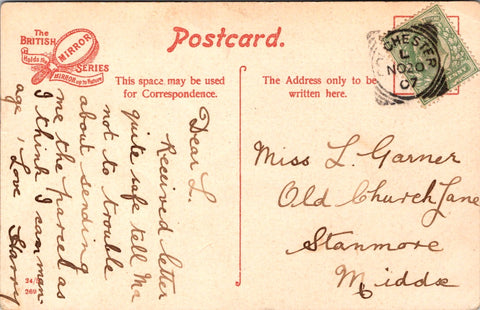 The
BRITISH
Holds the
MIRROR
MIRROR up to Nature
SERIES
Postcard.
CHESTER
L
NO 20
07
This space may be used
for Correspondence.
The Address only to be
written here.
Dear L.
Received letter
quite safe tell Ma
not to trouble
about sending
me the parcel as
I think I can man-
age, Love Harry
Miss L. Garner
Old Church Lane
Stanmore
Middx
269